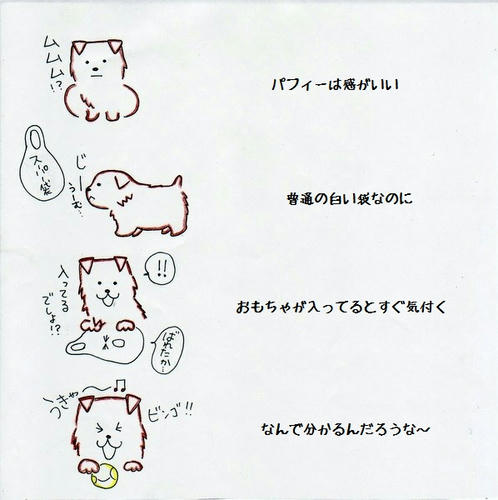 ムムム!?
パフィーは感がいい
スーパー袋
じーー
うーむ…
普通の白い袋なのに
!!
入ってる
でしょ!?
おもちゃが入ってるとすぐ気付く
ばれたか…
うきゃ〜♫
ビンゴ!!
なんで分かるんだろうな〜